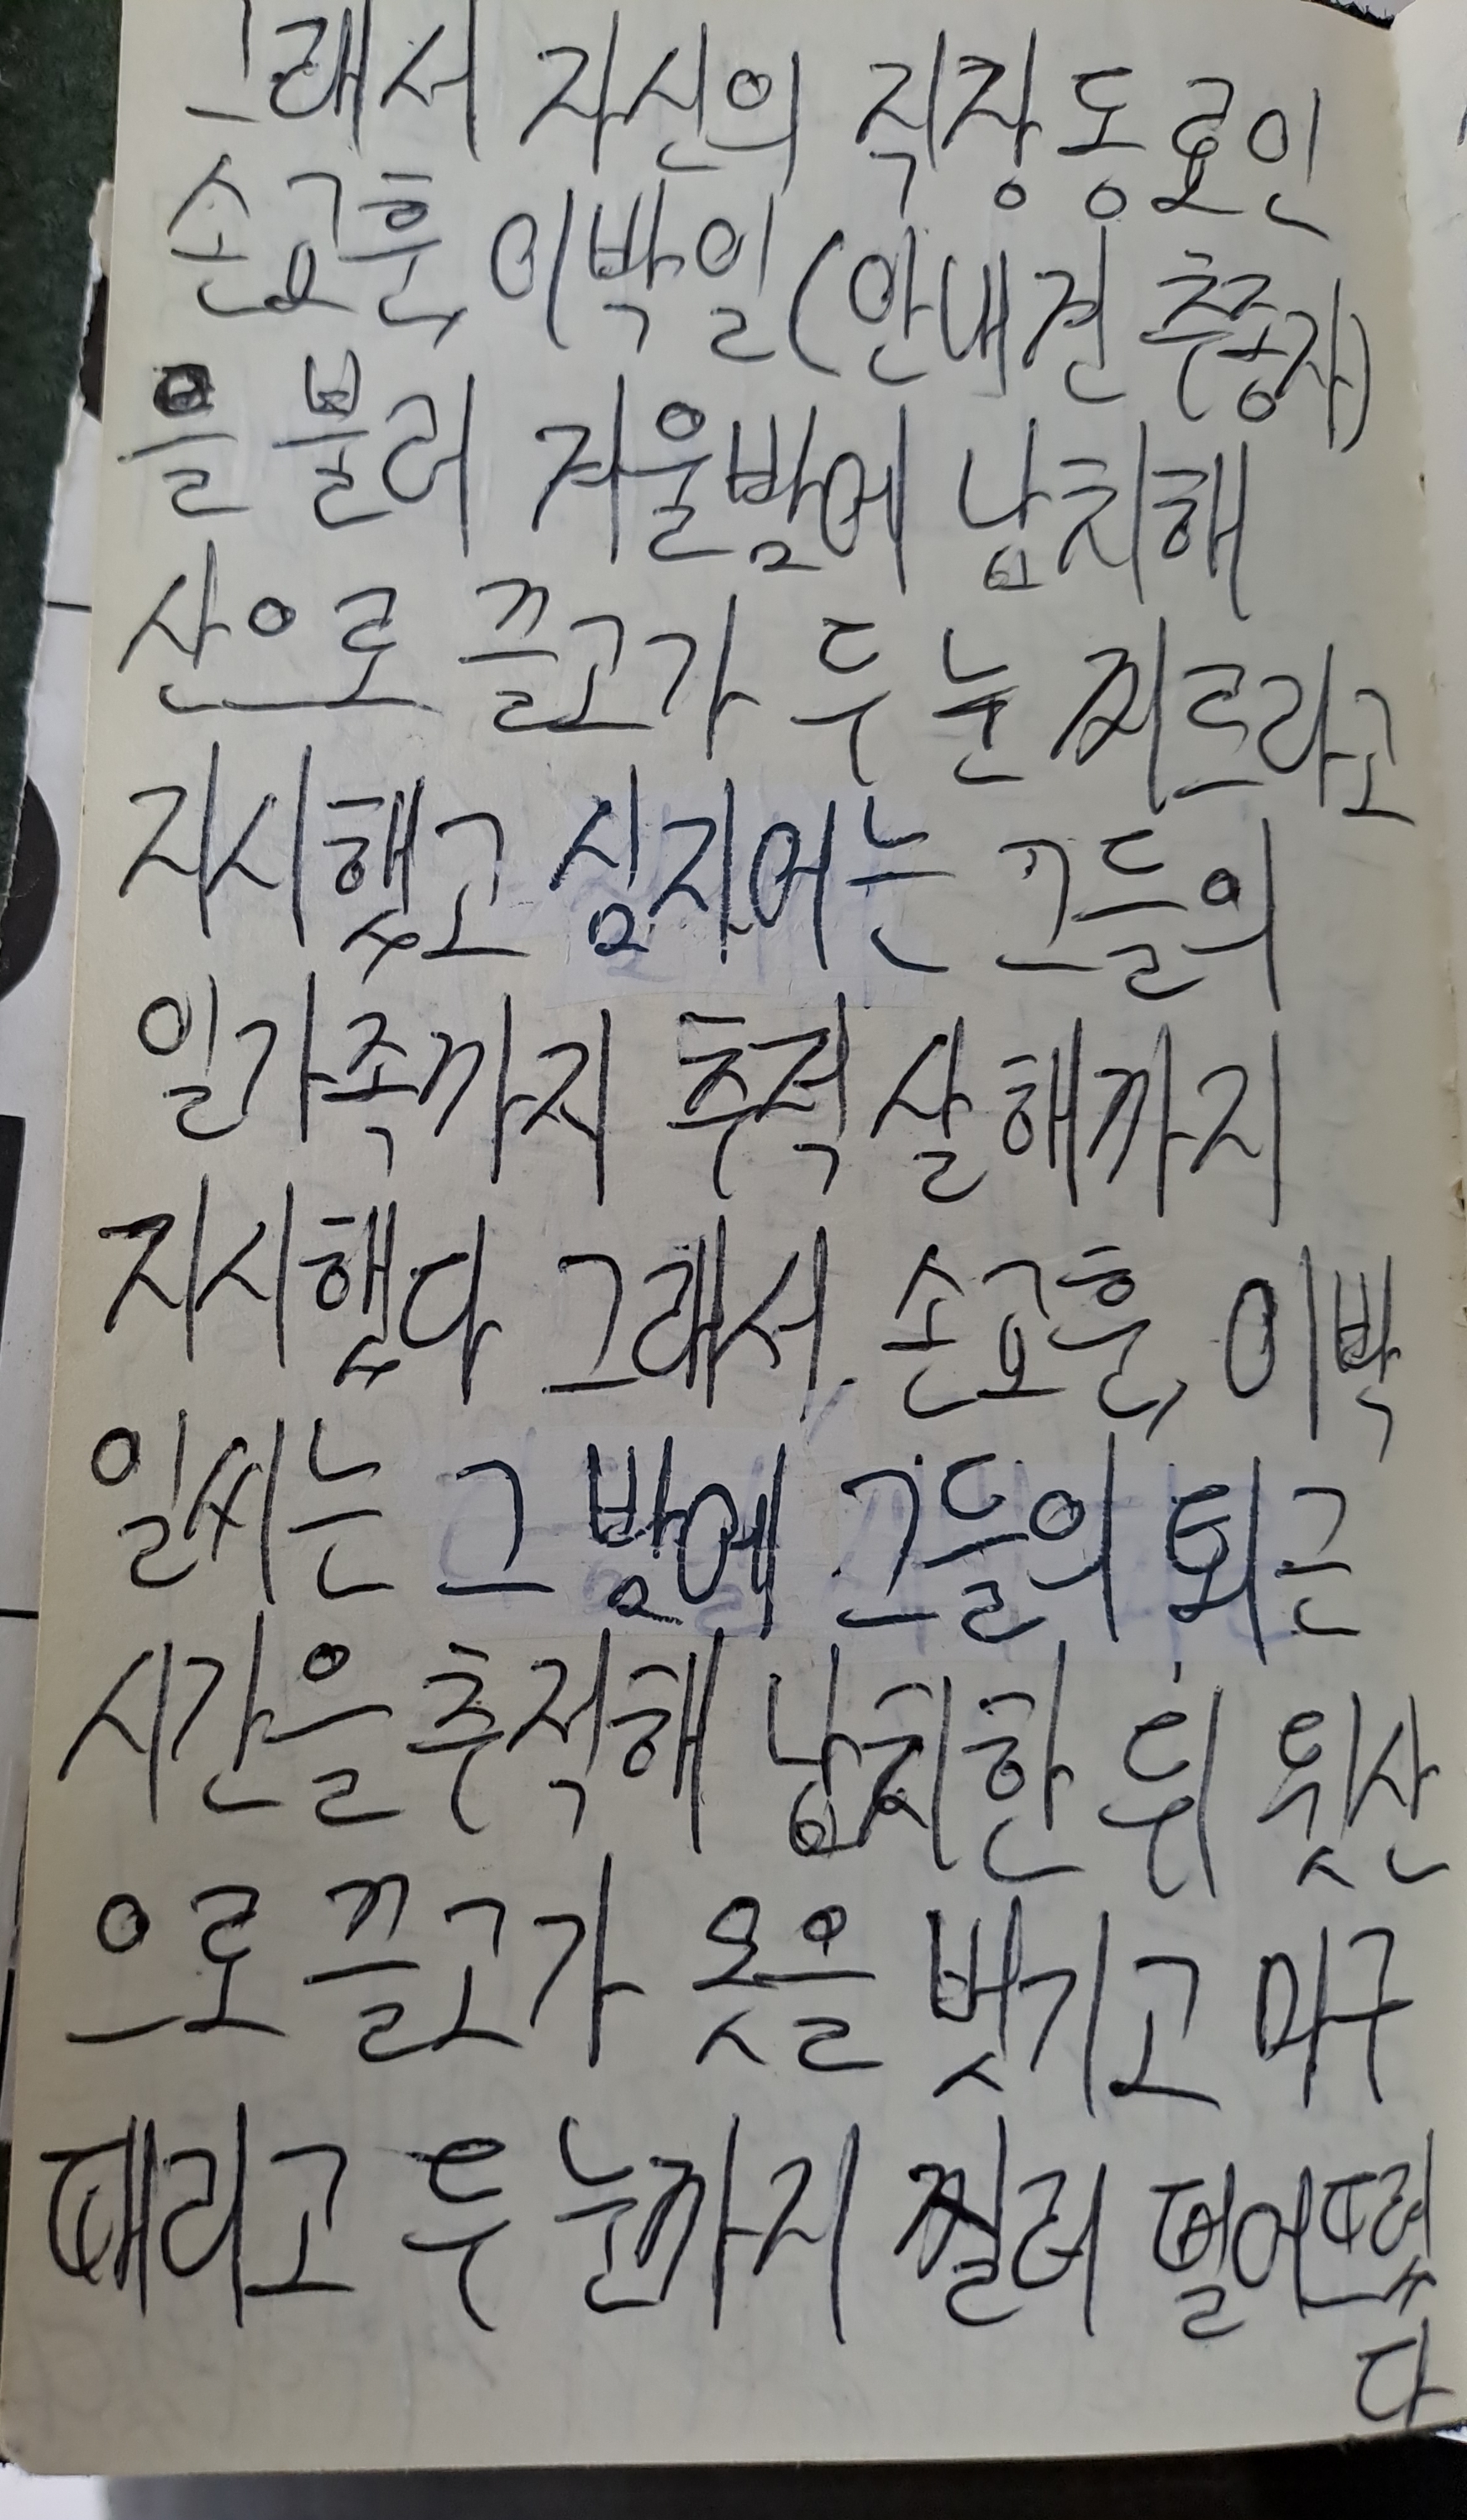 그래서 자신의 직장동료인
손교훈, 이박일(안내견 추종자)
을 불러 겨울밤에 납치해
산으로 끌고가 두 눈 찌르라고
지시했고 심지어는 그들의
일가족까지 추적 살해까지
지시했다 그래서, 손교훈, 이박
일씨는 그 밤에 그들의 퇴근
시간을 추적해 납치한 뒤 뒷산
으로 끌고가 옷을 벗기고 마구
때리고 두 눈까지 찔러 멀어뜨렸
다